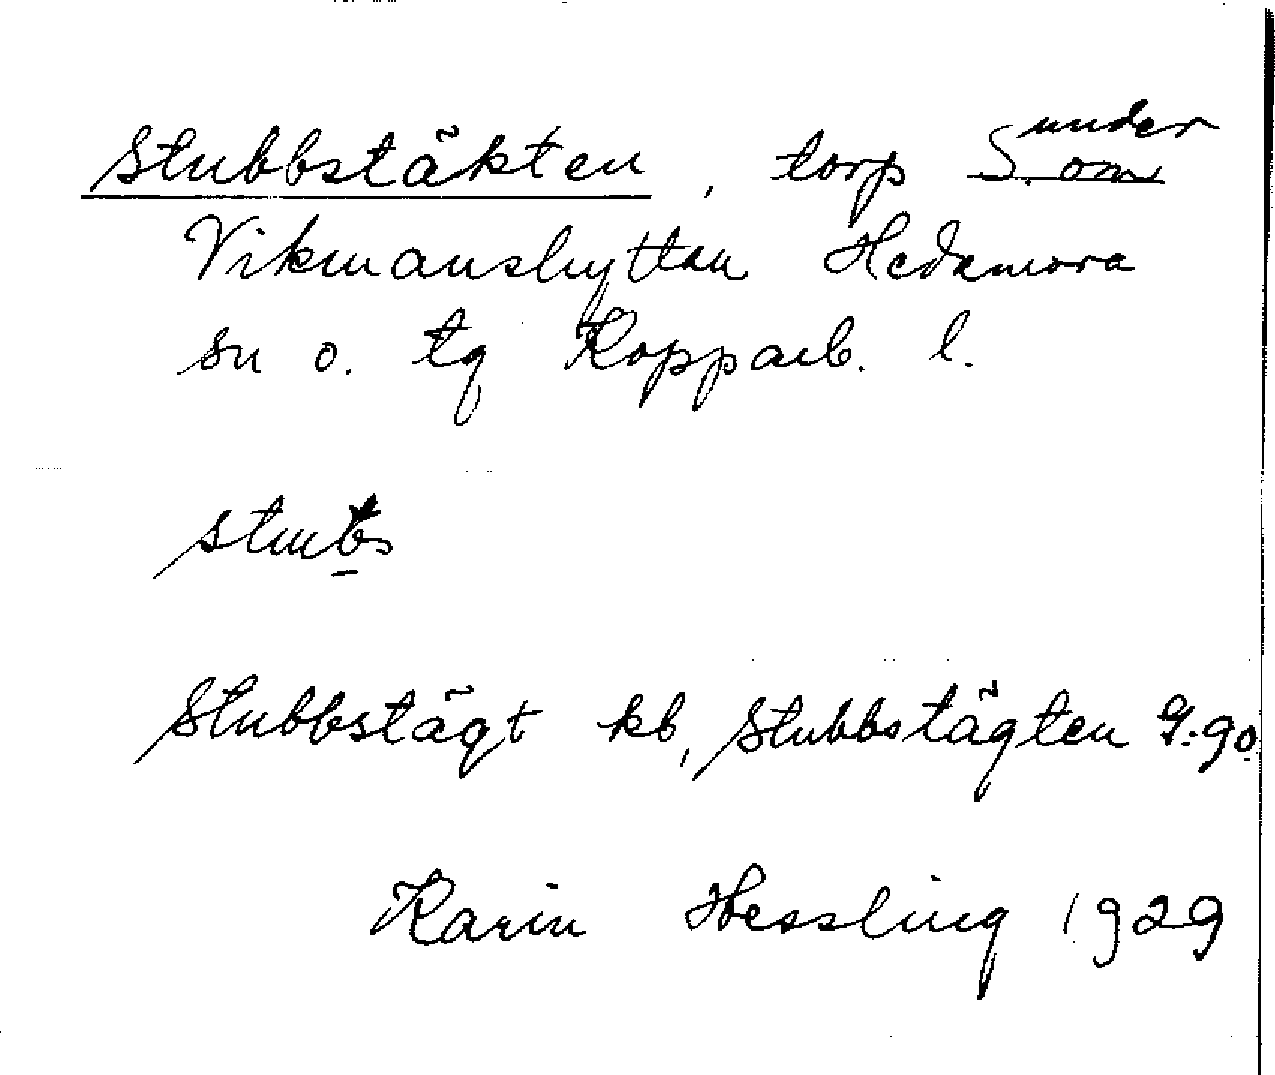 Stubbstäkten, torp under
Vikmanshyttan Hedemora
sn o. tg Kopparb. l.
Stubbstägt kb, Stubbstägten
Karin Hessling 1929